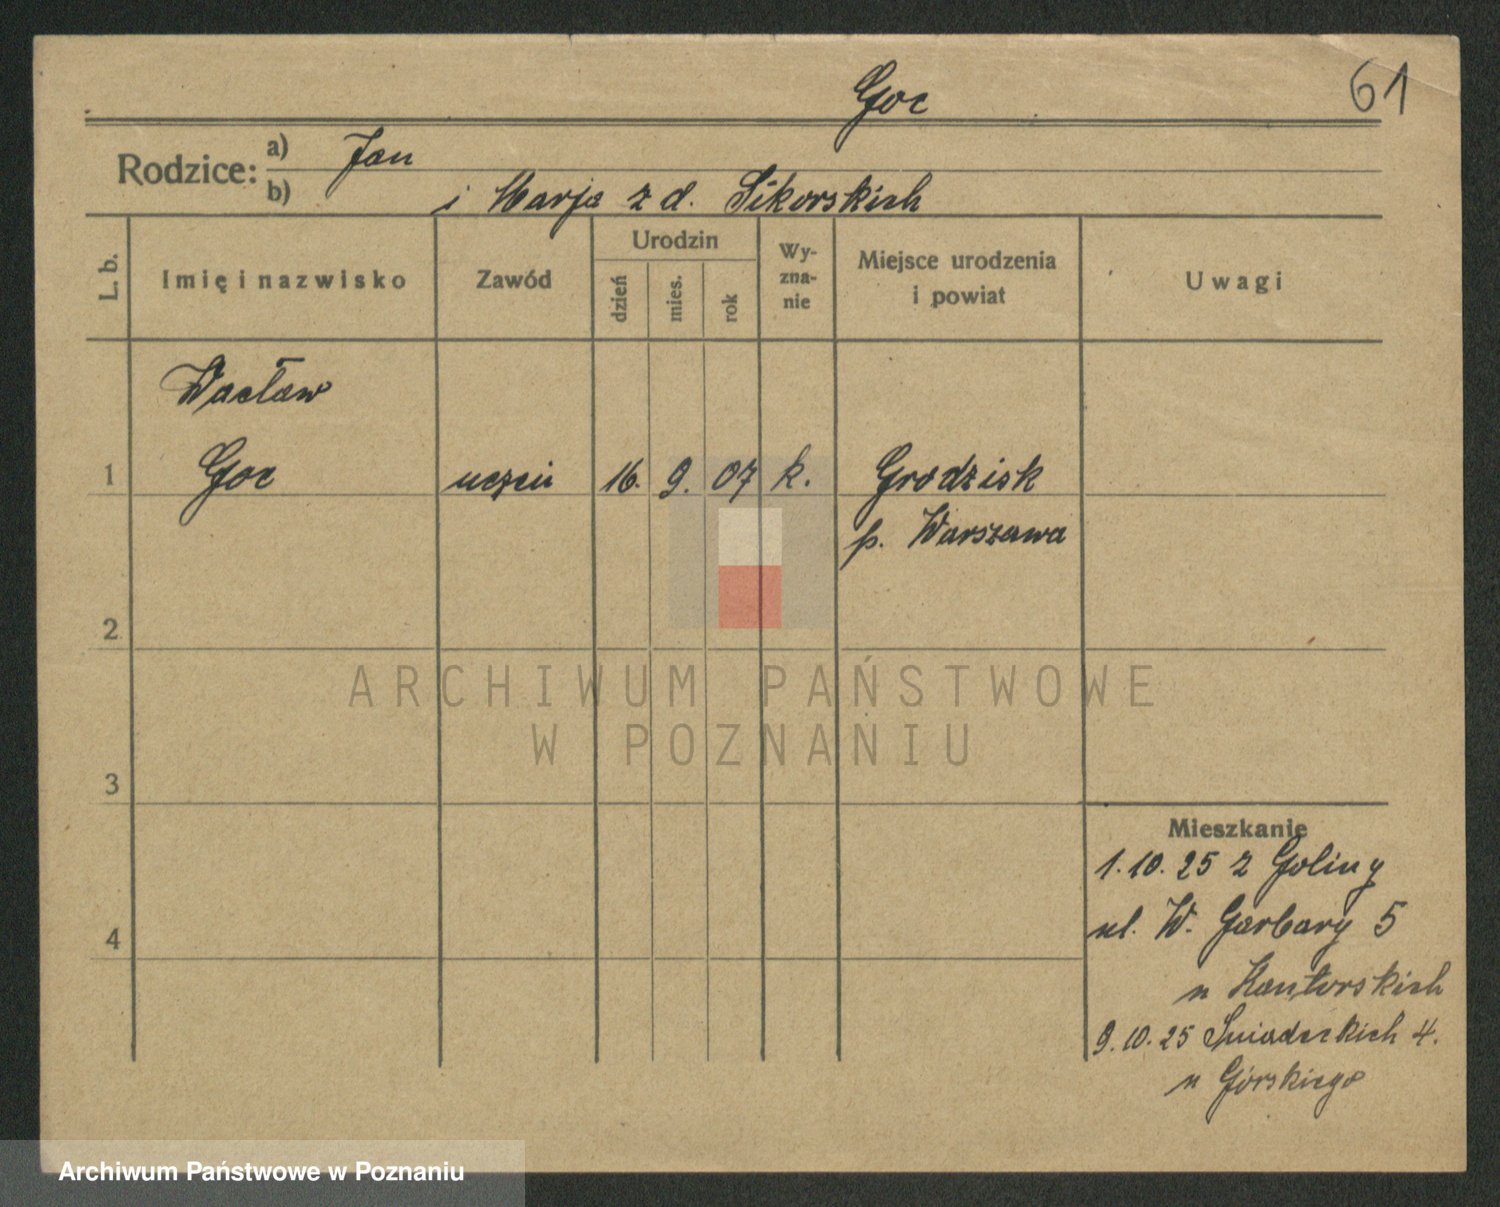 Goc
61
Rodzice:
a) Jan
b) i Marja z d. Sikorskich
L. b.
Imię i nazwisko
Zawód
Urodzin
dzień
mies.
rok
Wy-
zna-
nie
Miejsce urodzenia
i powiat
Uwagi
Wacław
1 Goc uczeń 16. 9. 07 k. Grodzisk
p. Warszawa
2
ARCHIWUM PAŃSTWOWE
W POZNANIU
3
Mieszkanie
1.10.25 z Goliny
ul. W. Garbary 5
4
u Kantorskich
9.10.25 Śniadeckich 4.
u Górskiego
Archiwum Państwowe w Poznaniu